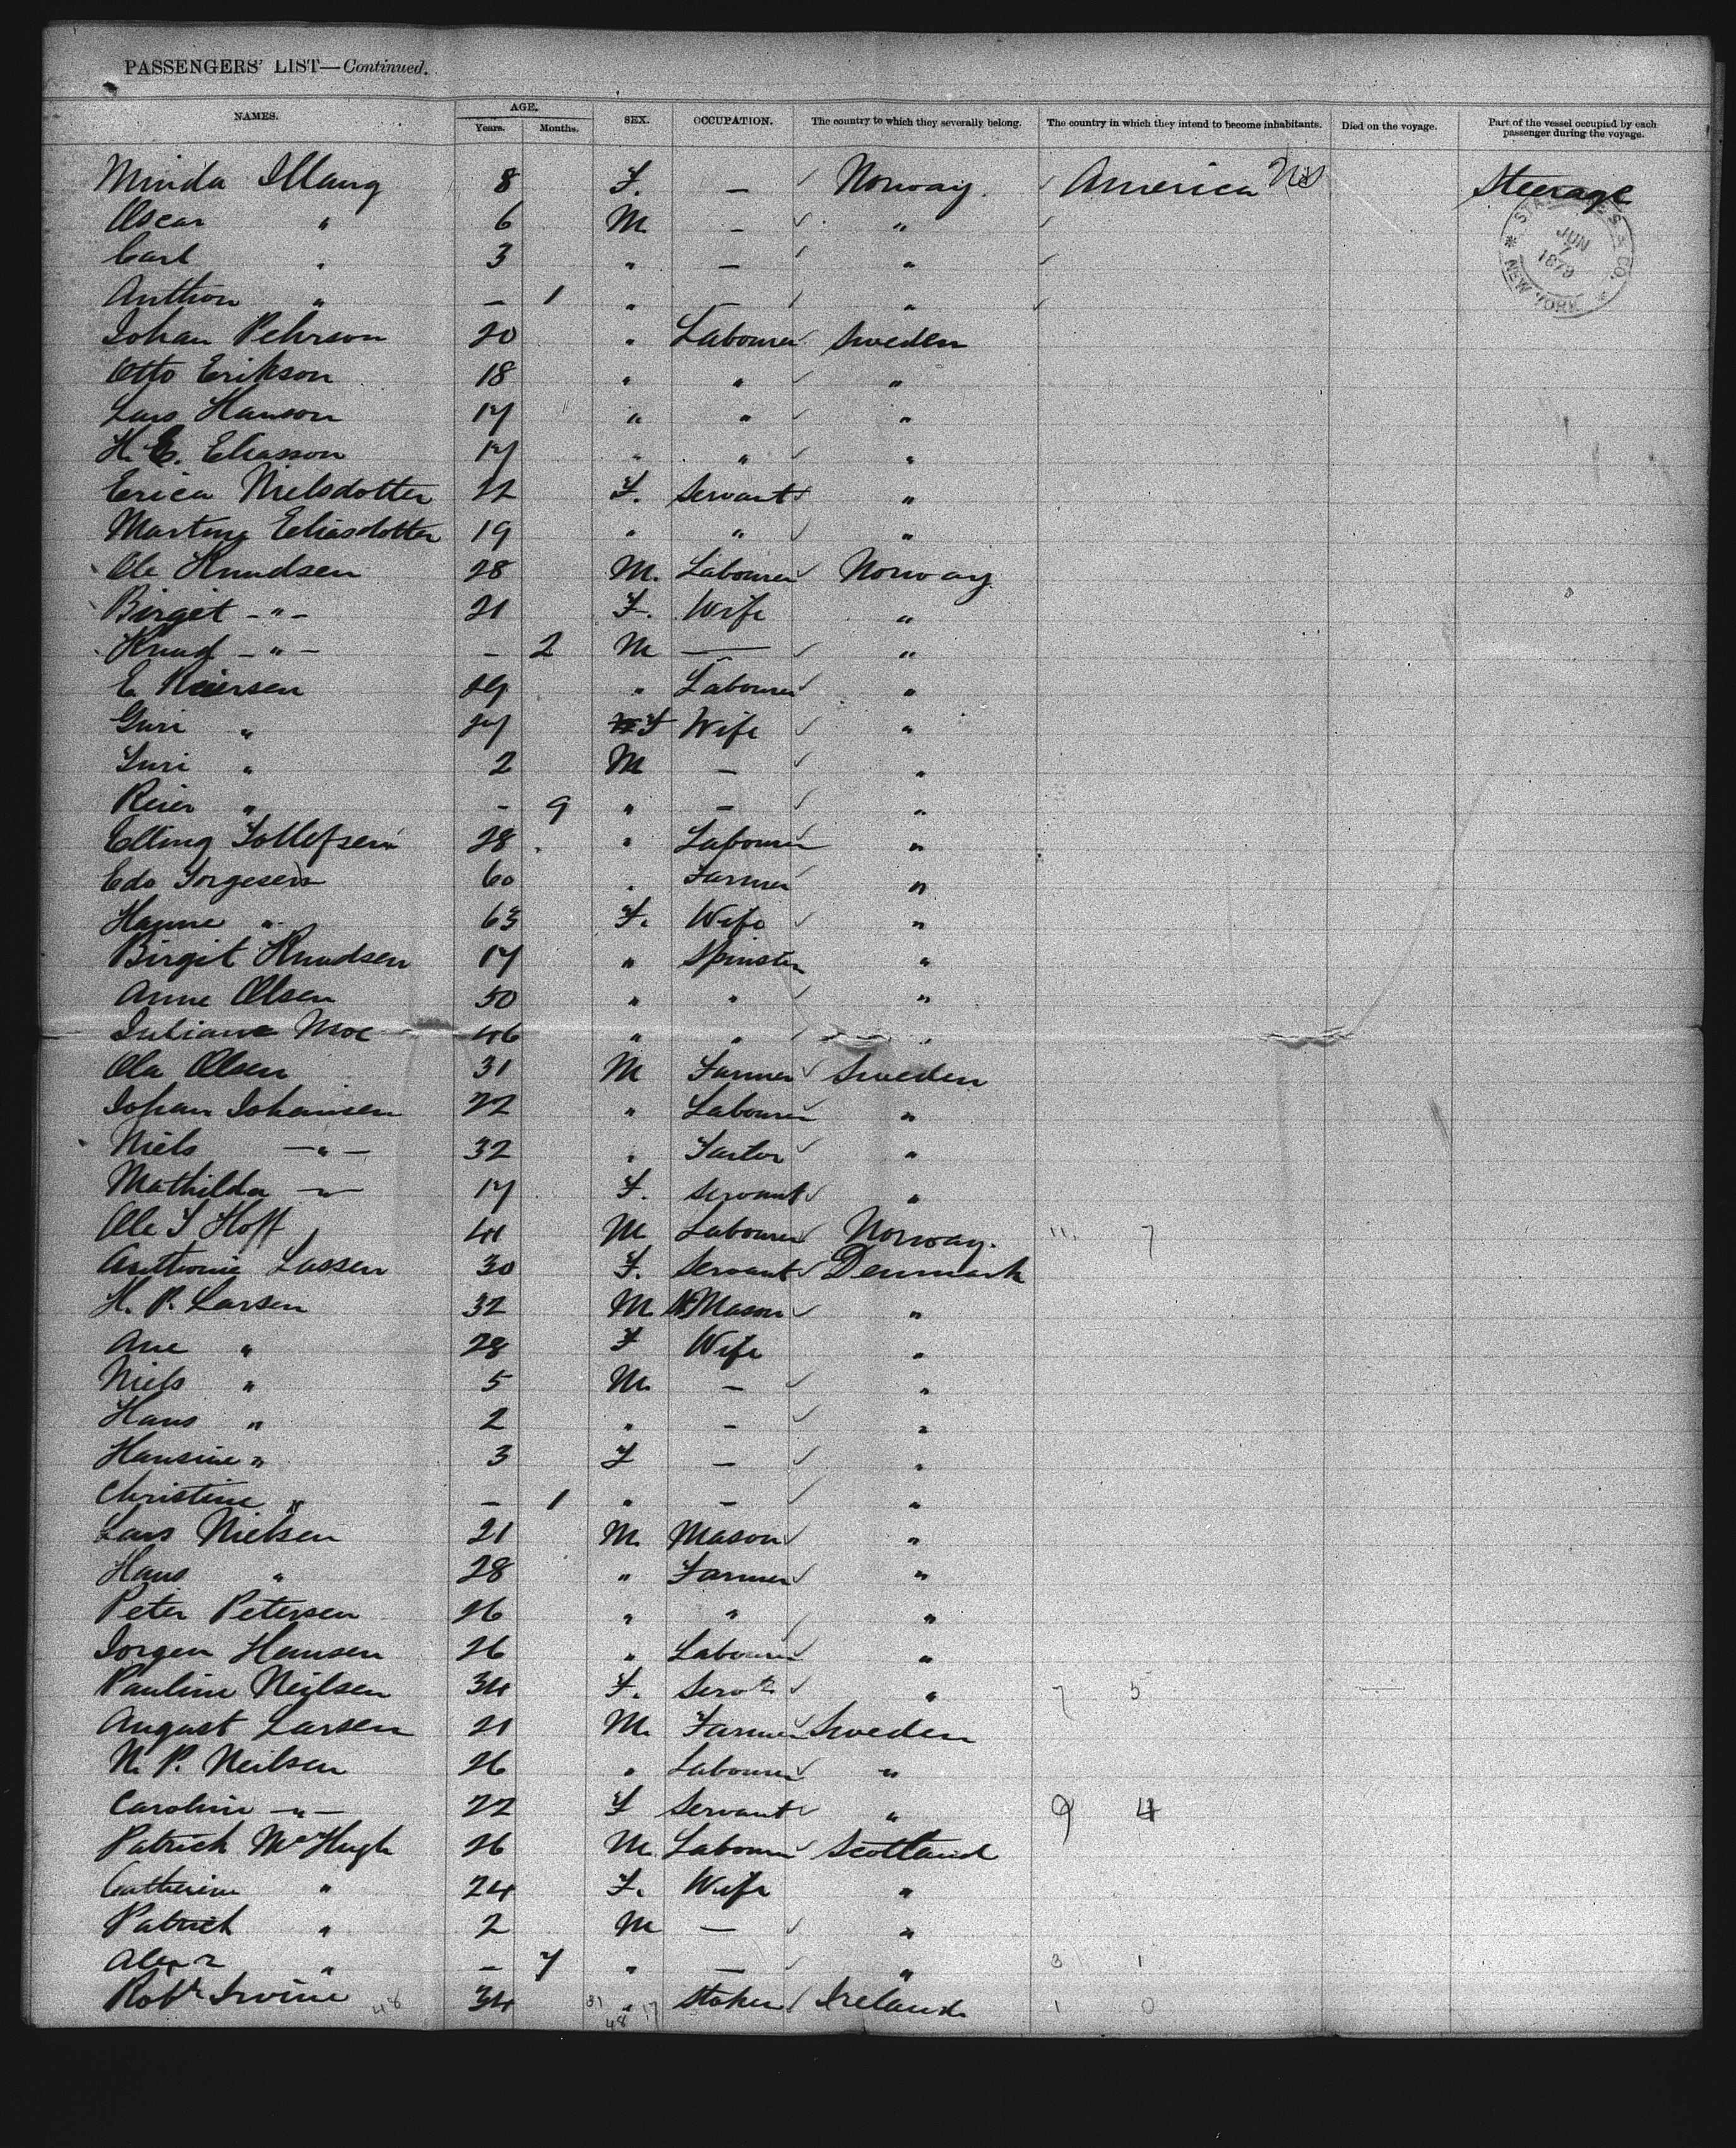 PASSENGERS' LIST—Continued.
NAMES. AGE. Years. Months. SEX. OCCUPATION. The country to which they severally belong. The country in which they intend to become inhabitants. Died on the voyage. Part of the vessel occupied by each passenger during the voyage.
Minda Illaug 8 F. — Norway. America Steerage
Oscar " 6 M — "
Carl " 3 " — "
Anthon " — 1 " — "
STATES & CO. NEW YORK JUN 7 1879
Johan Pehrson 20 " Labourer Sweden
Otto Erikson 18 " " "
Lars Hanson 17 " " "
H. E. Eliasson 17 " " "
Erica Nielsdotter 22 F. Servant "
Eeliasdotter 19 " " "
Ole Knudsen 28 M. Labourer Norway
Birget - " - 21 F. Wife "
Knud - " - — 2 M — "
E. Reiersen 29 " Labourer "
Guri " 27 F Wife "
Turi " 2 M — "
Reier " — 9 " — "
Elling Tollefsen 28 " Labourer "
Edo Torgesen 60 " Farmer "
Hanne " 63 F. Wife "
Birgit Knudsen 17 " Spinster "
Anne Olsen 50 " " "
Juliane Moe 46 " " "
Ola Olsen 31 M Farmer Sweden
Johan Johansen 22 " Labourer "
Niels — " — 32 " "
Mathilda — " — 17 F. Servant "
Ole T Hoff 41 M Labourer Norway. 11. 7
Anthonie Lassen 30 F. Servant Denmark
H. P. Larsen 32 M Mason "
Ane " 28 F Wife "
Niels " 5 M. — "
Hans " 2 " — "
Hansine " 3 F — "
Christine " — 1 " — "
Lars Nielsen 21 M. Mason "
Hans " 28 " Farmer "
Peter Petersen 26 " " "
Jorgen Hansen 26 " Labourer "
Pauline Neilsen 34 F. Servt. " 7 5
August Larsen 21 M. Farmer Sweden
N. P. Neilsen 26 " Labourer "
Caroline — " — 22 F Servant " 9 4
Patrick McHugh 26 M. Labourer Scotland
Catherine " 24 F. Wife "
Patrick " 2 M — "
Alexr " — 7 " — " 3 1
Robt Irvine 48 34 " Stoker Ireland 1 0
31 17
48